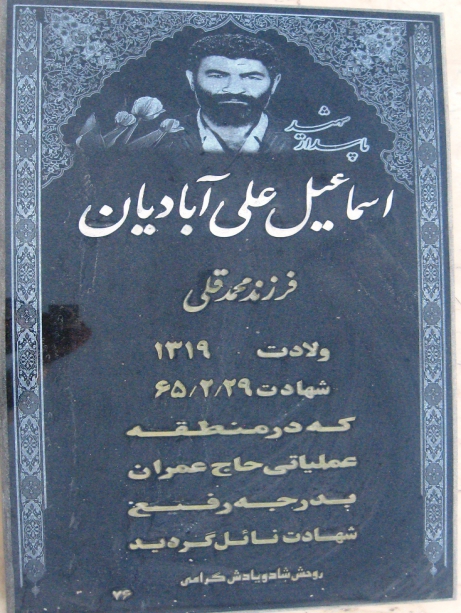 شهید
پاسدار
اسماعیل علی آبادیان
فرزند محمد قلی
ولادت ۱۳۱۹
شهادت ۶۵/۲/۲۹
که در منطقه
عملیاتی حاج عمران
بدرجه رفیع
شهادت نائل گردید
روحش شاد و یادش گرامی
۷۶